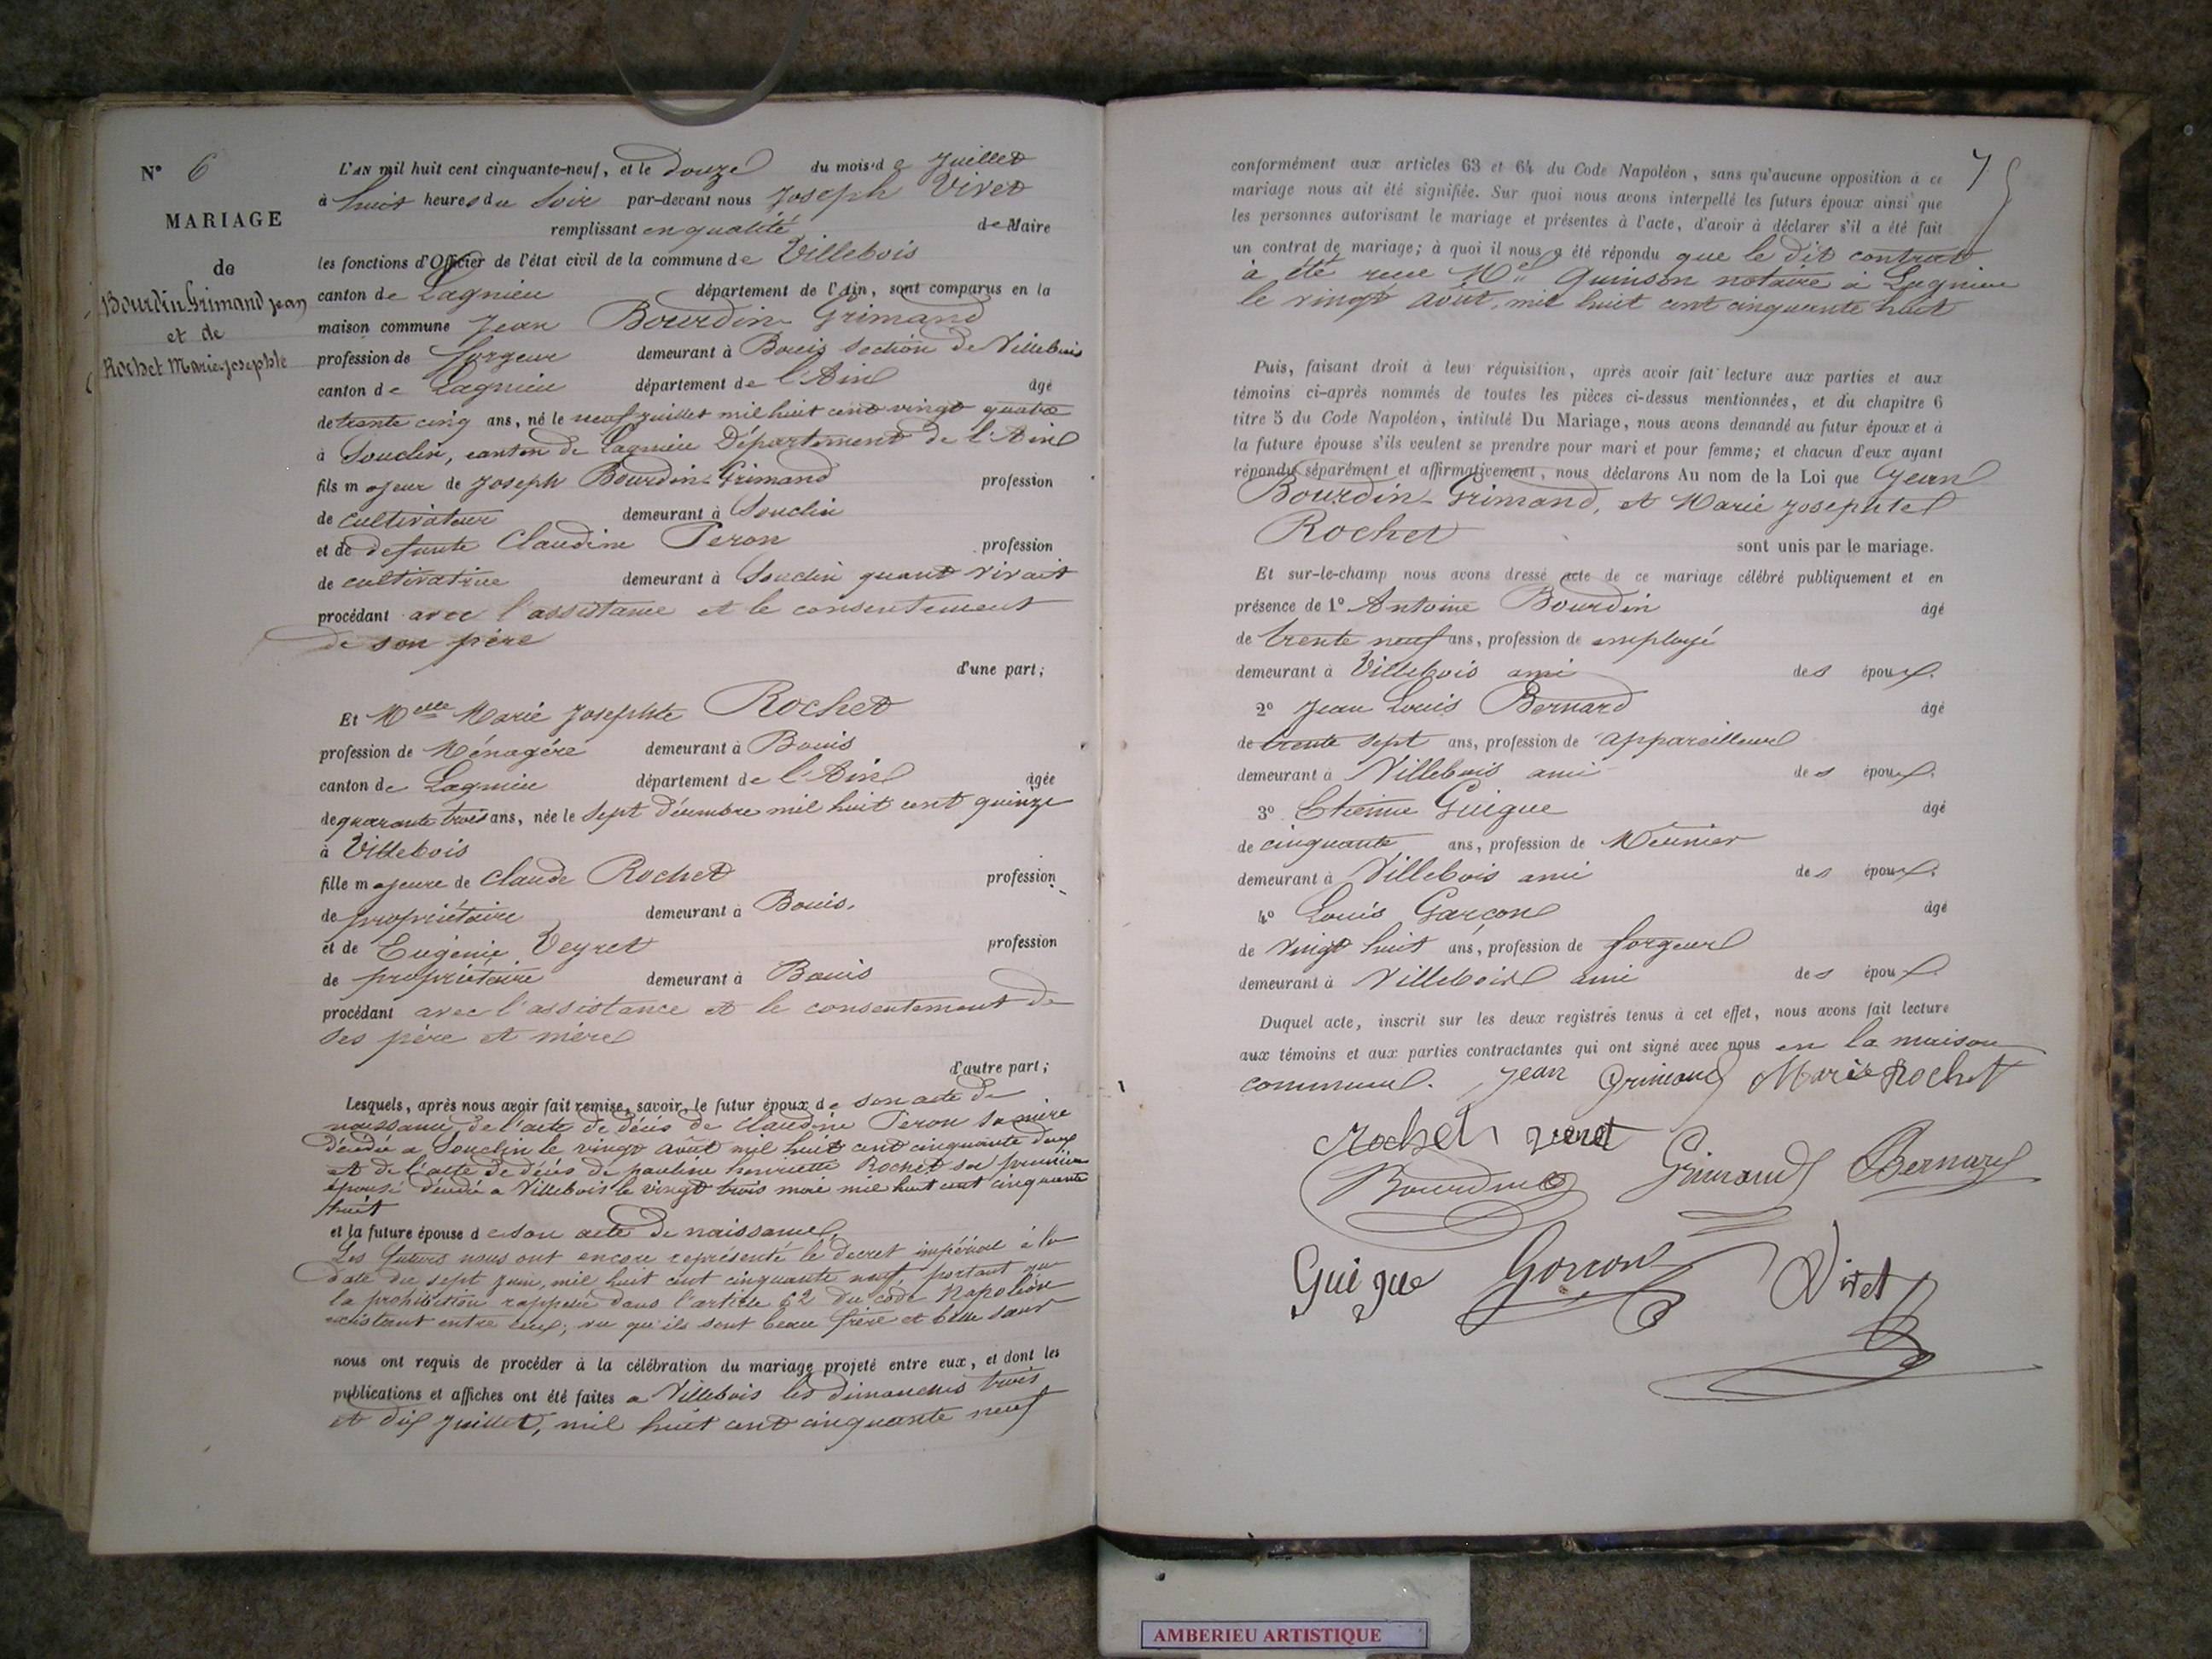 N° 6
MARIAGE
de
Bourdin Grimand Jean
et de
Rochet Marie Josephte
L'AN mil huit cent cinquante-neuf, et le douze du mois de Juillet
à huit heures du Soir par-devant nous Joseph Vivet
remplissant en qualité de Maire
les fonctions d'Officier de l'état civil de la commune de Villebois
canton de Lagnieu département de l'Ain, sont comparus en la
maison commune Jean Bourdin Grimand
profession de forgeur demeurant à Bouis Section de Villebois
canton de Lagnieu département de l'Ain âgé
de trente cinq ans, né le neuf juillet mil huit cent vingt quatre
à Souclin, canton de Lagnieu Département de l'Ain
fils majeur de Joseph Bourdin-Grimand profession
de cultivateur demeurant à Souclin
et de defunte Claudine Peron profession
de cultivatrice demeurant à Souclin quant vivait
procédant avec l'assistance et le consentement
de son père
d'une part;
Et Melle Marie Josephte Rochet
profession de Ménagère demeurant à Bouis
canton de Lagnieu département de l'Ain âgée
de quarante trois ans, née le sept décembre mil huit cent quinze
à Villebois
fille majeure de Claude Rochet profession
de propriétaire demeurant à Bouis.
et de Eugénie Veyret profession
de propriétaire demeurant à Bouis
procédant avec l'assistance et le consentement de
ses père et mère
d'autre part;
Lesquels, après nous avoir fait remise, savoir, le futur époux de son acte de
naissance, de l'acte de décès de Claudine Peron sa mère
décédée a Souclin le vingt août mil huit cent cinquante deux
et de l'acte de décès de pauline henriette Rochet sa première
épouse décédée a Villebois le vingt trois mai mil huit cent cinquante
huit
et la future épouse de son acte de naissance,
Les futurs nous ont encore représenté le decret impérial à la
date du sept juin, mil huit cent cinquante neuf, portant que
la prohibition rappelée dans l'article 62 du code Napoléon
existant entre eux; vu qu'ils sont beau frère et belle sœur
nous ont requis de procéder à la célébration du mariage projeté entre eux, et dont les
publications et affiches ont été faites a Villebois les dimanches trois
et dix juillet, mil huit cent cinquante neuf
75
conformément aux articles 63 et 64 du Code Napoléon, sans qu'aucune opposition à ce
mariage nous ait été signifiée. Sur quoi nous avons interpellé les futurs époux ainsi que
les personnes autorisant le mariage et présentes à l'acte, d'avoir à déclarer s'il a été fait
un contrat de mariage; à quoi il nous a été répondu que le dit contrat
à été reçu Me Quinson notaire à Lagnieu
le vingt août, mil huit cent cinquante huit
Puis, faisant droit à leur réquisition, après avoir fait lecture aux parties et aux
témoins ci-après nommés de toutes les pièces ci-dessus mentionnées, et du chapitre 6
titre 5 du Code Napoléon, intitulé Du Mariage, nous avons demandé au futur époux et à
la future épouse s'ils veulent se prendre pour mari et pour femme; et chacun d'eux ayant
répondu séparément et affirmativement, nous déclarons Au nom de la Loi que Jean
Bourdin-Grimand, et Marie Josephte
Rochet
sont unis par le mariage.
Et sur-le-champ nous avons dressé acte de ce mariage célébré publiquement et en
présence de 1° Antoine Bourdin âgé
de trente neuf ans, profession de employé
demeurant à Villebois ami des époux.
2° Jean Louis Bernard âgé
de trente sept ans, profession de appareilleur
demeurant à Villebois ami des époux.
3° Etienne Guigue âgé
de cinquante ans, profession de Meunier
demeurant à Villebois ami des époux.
4° Louis Garçon âgé
de vingt huit ans, profession de forgeur
demeurant à Villebois ami des époux.
Duquel acte, inscrit sur les deux registres tenus à cet effet, nous avons fait lecture
aux témoins et aux parties contractantes qui ont signé avec nous en la maison
commune. Jean Grimand Marie Rochet
Rochet
Bourdin Grimand Bernard
Guigue Vivet
AMBERIEU ARTISTIQUE